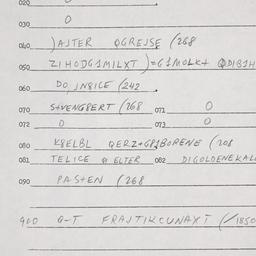 020
030 0
040 )AJTER QGREJSE (268
050 ZIHODG1MILXT )=G1MOLK+ QDIB1H
060 DO JN8ICE (242
070 S+VENGBERT (268 071 0
072 0 073 0
080 K8ELBL QERZ+G81BORENE (208
081 TELICE @ ELTER 082 DIGOLDENEKAL
090 PAS+EN (268
400 G-T FRAJTIKCUNAXT (/1850